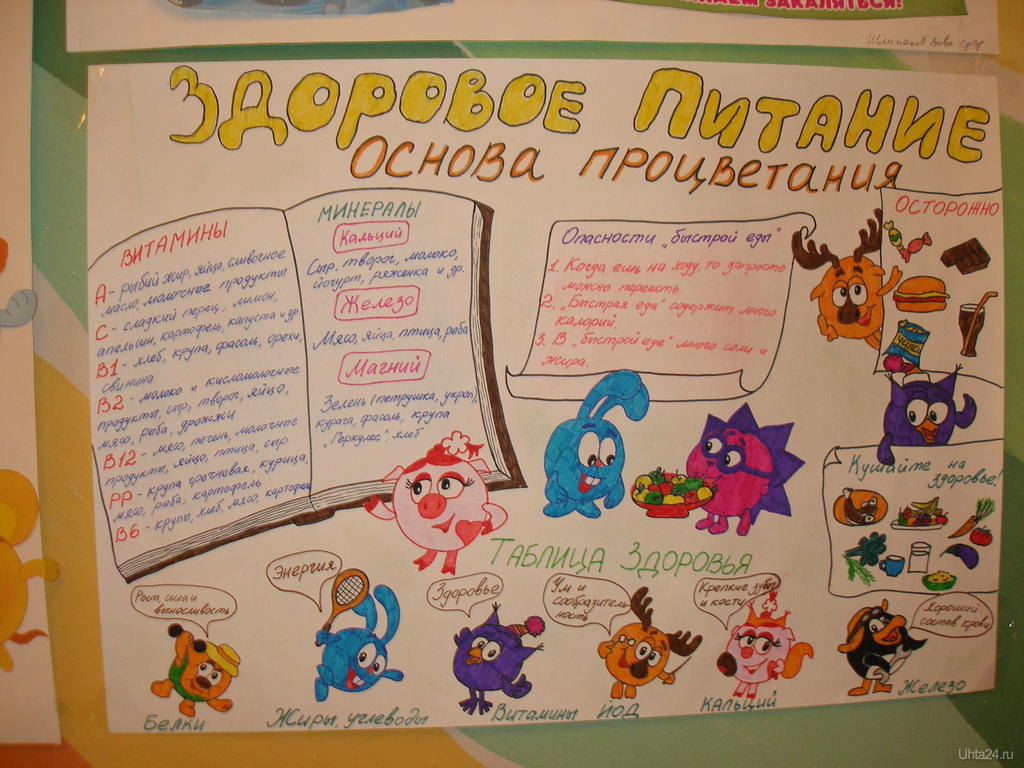 ЗАКАЛЯТЬСЯ!
Вова
ЗДОРОВОЕ ПИТАНИЕ
ОСНОВА ПРОЦВЕТАНИЯ
ВИТАМИНЫ
А - рыбий жир, яйца, сливочное
масло, молочные продукты
С - сладкий перец, лимон,
апельсин, картофель, капуста и др.
В1 - хлеб, крупа, фасоль, орехи,
свинина
В2 - молоко и кисломолочные
продукты, сыр, творог, яйцо,
мясо, рыба, дрожжи
В12 - мясо, печень, молочные
продукты, яйцо, птица, сыр
РР - крупа гречневая, курица,
мясо, рыба, картофель
В6 - крупы, хлеб, мясо, картофель
МИНЕРАЛЫ
Кальций
Сыр, творог, молоко,
йогурт, ряженка и др.
Железо
Мясо, яйца, птица, рыба
Магний
Зелень (петрушка, укроп),
курага, фасоль, крупа
„Геркулес", хлеб
Опасности „быстрой еды"
1. Когда ешь на ходу, то запросто
можно переесть.
2. „Быстрая еда" содержит много
калорий.
3. В „быстрой еде" много соли и
жира.
ОСТОРОЖНО
Кушайте на
здоровье!
ТАБЛИЦА ЗДОРОВЬЯ
Рост, сила и
выносливость
Энергия
Здоровье
Ум и
сообразитель-
ность
Крепкие зубы
и кости
Хороший
состав крови
Белки
Жиры, углеводы
Витамины
ЙОД
КАЛЬЦИЙ
Железо
Uhta24.ru